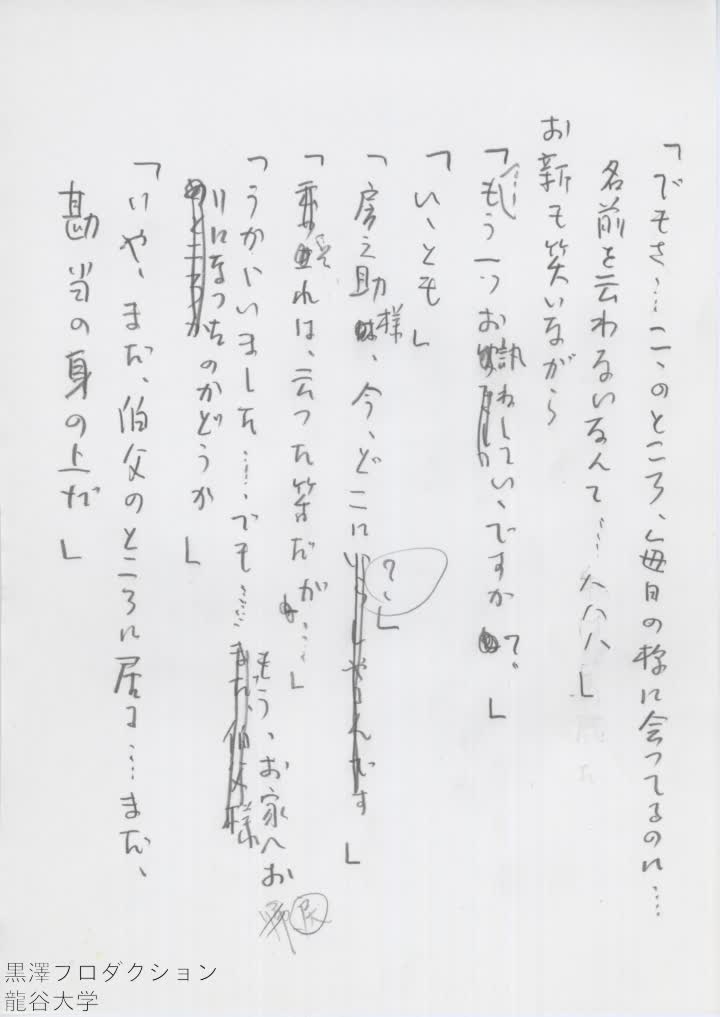 「でもさ……こゝのところ、毎日の様に会ってるのに……
名前を云わないなんて……ハハハ」
お新も笑いながら
「……もう一つお訊ねしていゝですか？」
「いゝとも」
「房之助様は、今、どこに？」
「それは、云った筈だが……」
「うかゞいました……でも……もう、お家へお戻
りになったのかどうか」
「いや、まだ、伯父のところに居る……まだ、
勘当の身の上だ」
黒澤プロダクション
龍谷大学